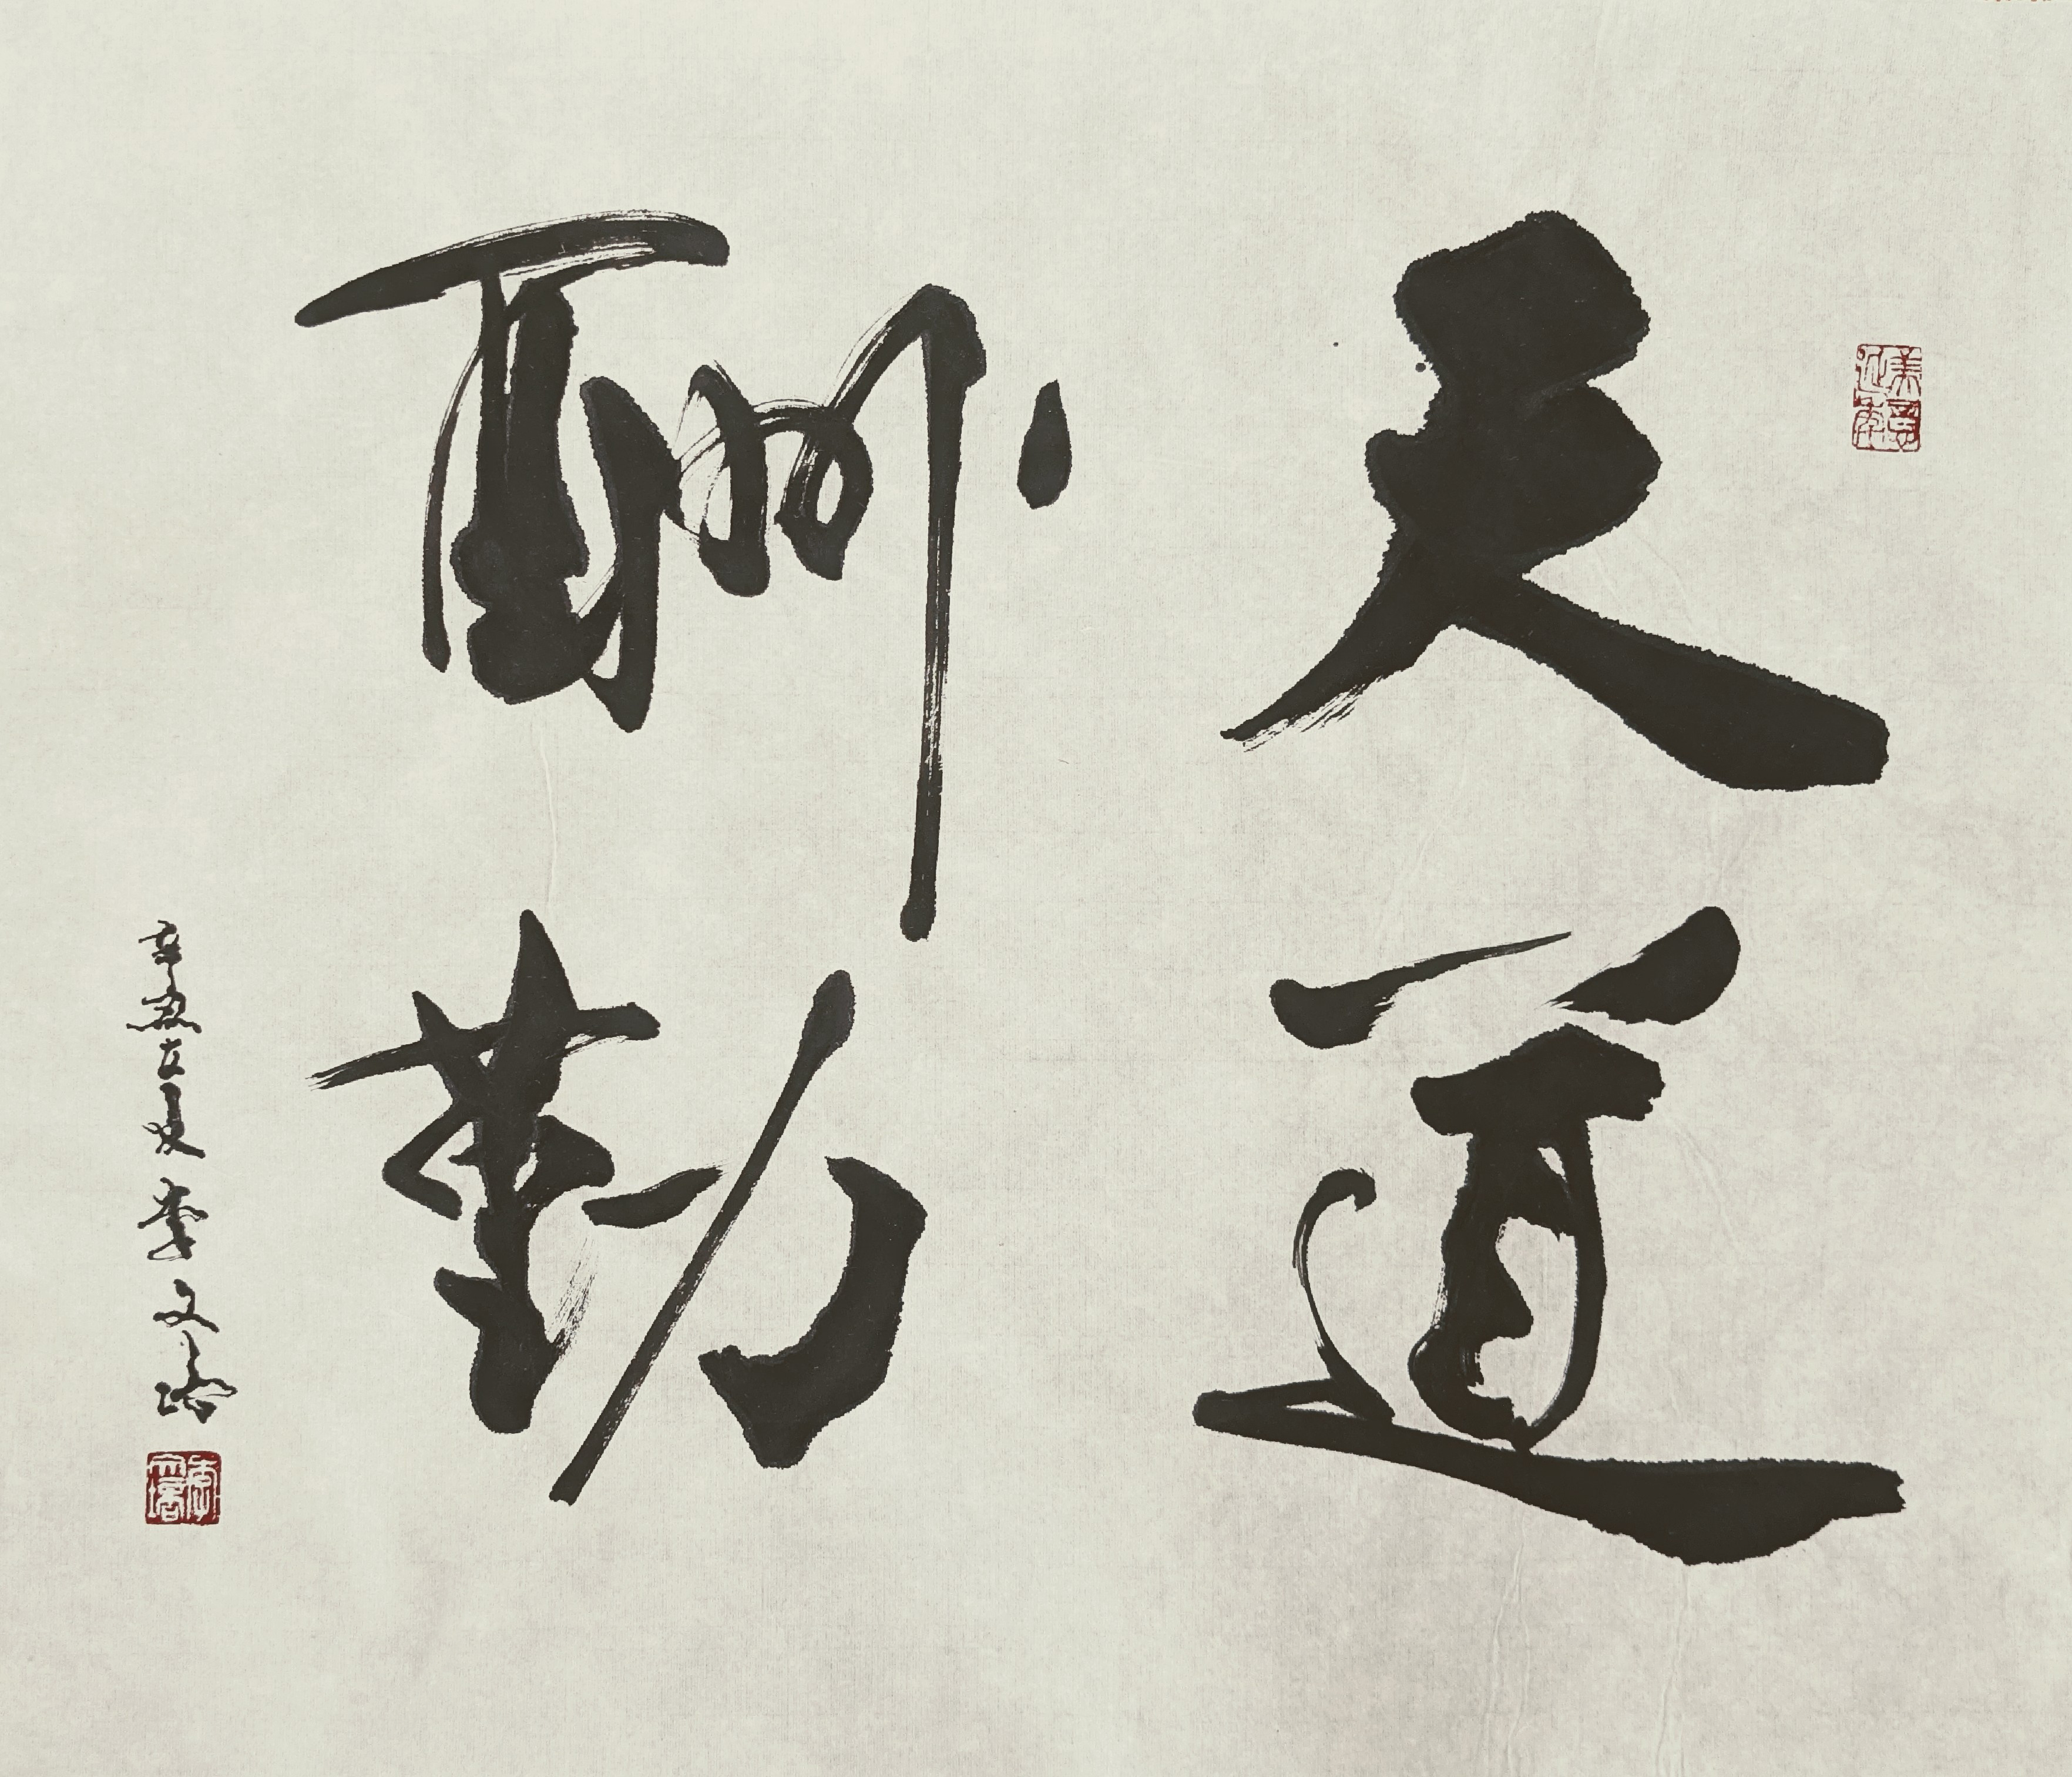 天道
酬勤
辛丑立夏 李文培